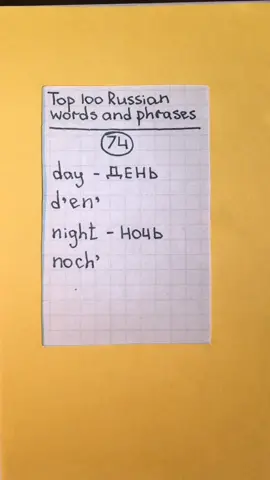 Top 100 Russian
words and phrases
74
day - ДЕНЬ
d'en'
night - НОЧЬ
noch'